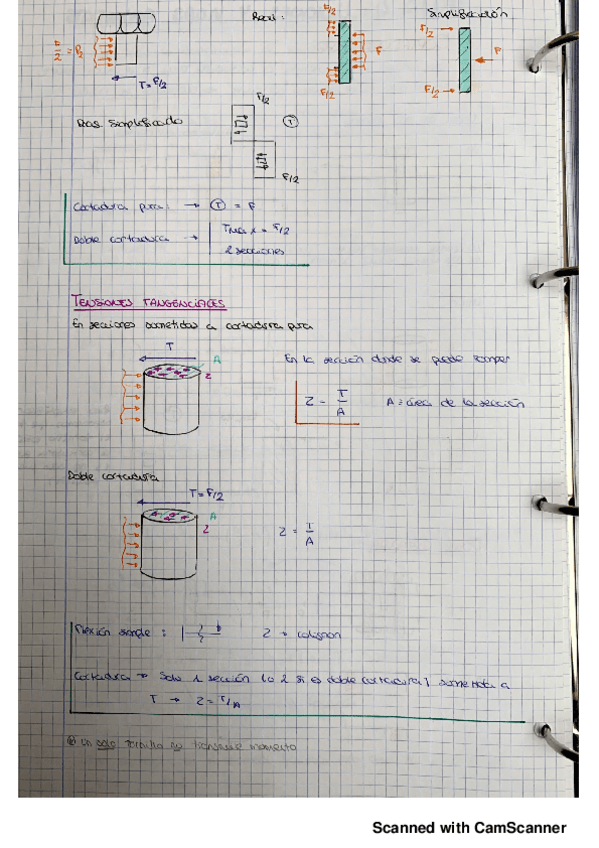 Real:
Simplificación
F/2
F/2
F
F/2
F/2
F
T = F/2
Simplificado
F/2
T
F/2
Cortadura pura: → T = F
Doble cortadura → Tmax = F/2
2 secciones
TENSIONES TANGENCIALES
En secciones sometidas a cortadura pura
T
A
Z
En la sección donde se puede romper
Z = T/A
A = área de la sección
Doble cortadura
T = F/2
A
Z
Z = T/A
Flexión simple:
Z → colignon
Cortadura → Solo 1 sección (o 2 si es doble cortadura) sometida a
T → Z = T/A
un solo tornillo no transmite momento
Scanned with CamScanner